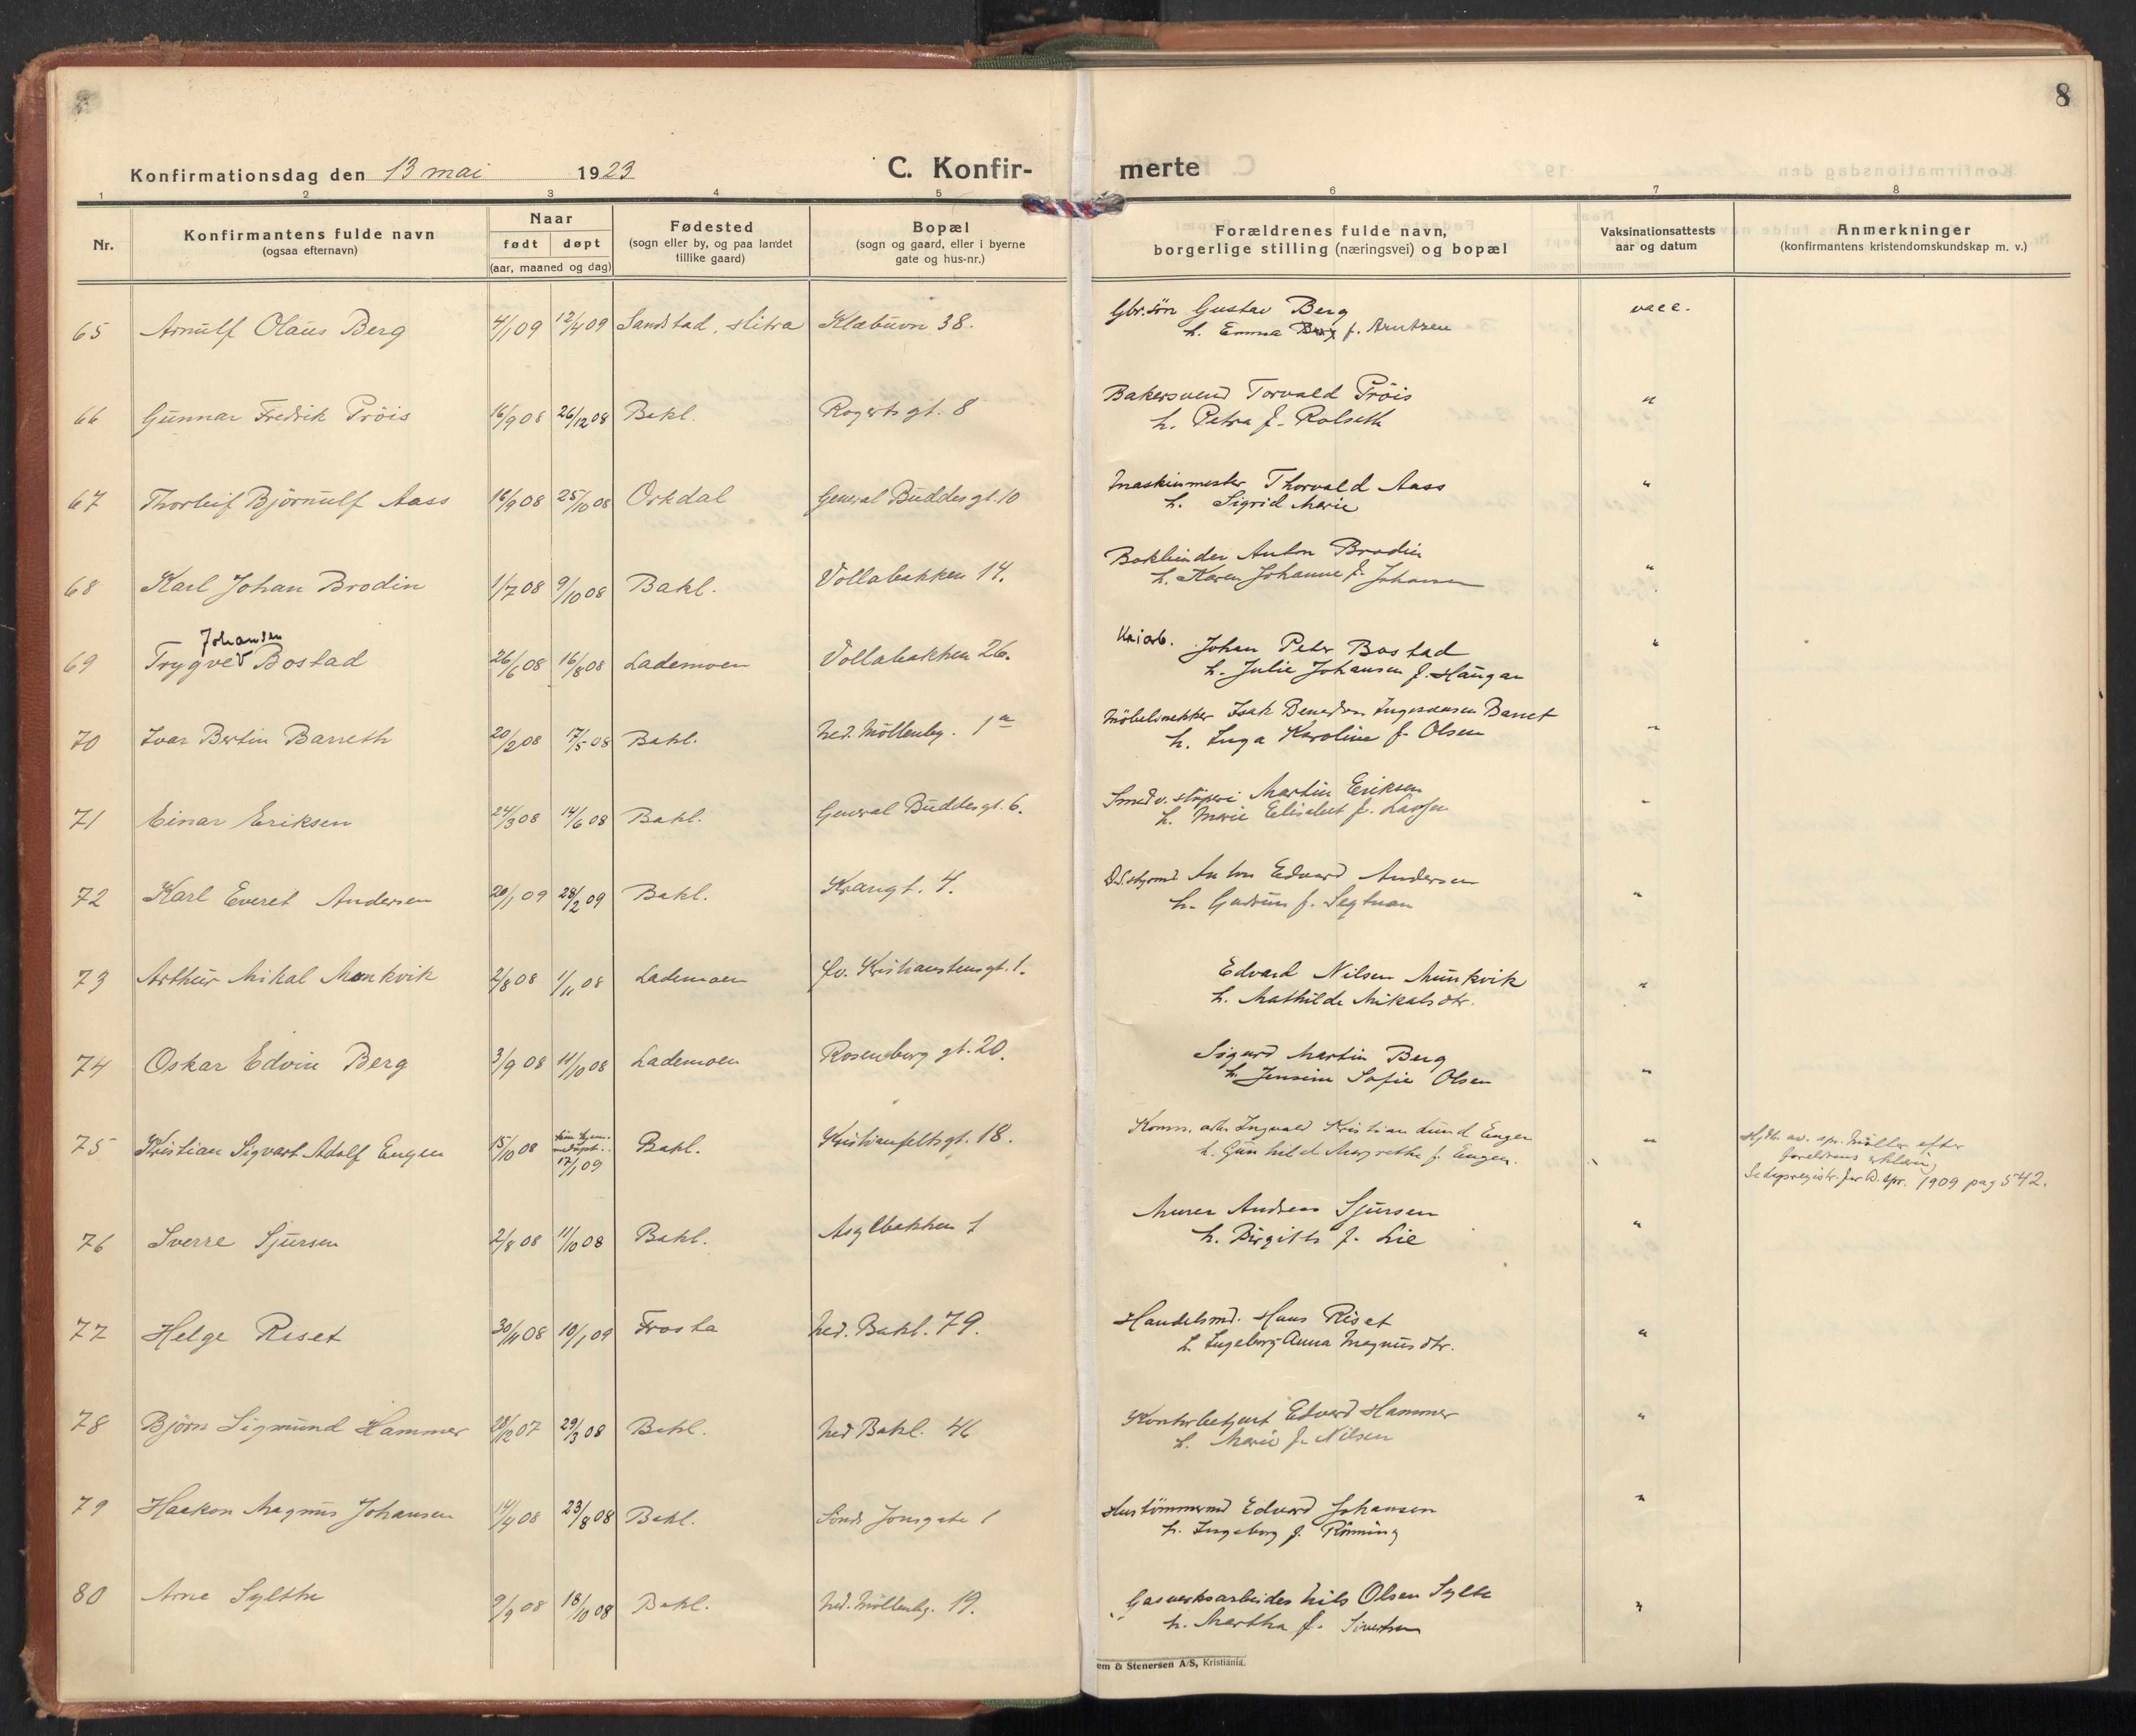 8
Konfirmationsdag den 13 mai 1923
C. Konfirmerte
1 2 3 4 5 6 7 8
Nr.
Konfirmantens fulde navn
(ogsaa efternavn)
Naar
født døpt
(aar, maaned og dag)
Fødested
(sogn eller by, og paa landet
tillike gaard)
Bopæl
(sogn og gaard, eller i byerne
gate og hus-nr.)
Forældrenes fulde navn,
borgerlige stilling (næringsvei) og bopæl
Vaksinationsattests
aar og datum
Anmerkninger
(konfirmantens kristendomskundskap m. v.)
65 Arnulf Olaus Berg 4/1 09 12/4 09 Sandstad, Hitra Klæbuvn 38. Gbr.sön Gustav Berg vacc.
h. Emma Berg f. Arntzen
66 Gunnar Fredrik Pröis 16/9 08 26/12 08 Bakl. Rogertsgt. 8 Bakersvend Torvald Pröis "
h. Petra f. Rolseth
67 Thorleif Björnulf Aass 16/9 08 25/10 08 Orkdal General Buddesgt. 10 Maskinmester Thorvald Aass "
h. Sigrid Marie
68 Karl Johan Brodin 1/7 08 9/10 08 Bakl. Vollabakken 14. Bokbinder Anton Brodin "
h. Karen Johanne f. Johansen
Johansen
69 Trygve Bostad 26/6 08 16/8 08 Lademoen Vollabakken 26. Kaiarb. Johan Peter Bostad "
h. Julie Johansen f. Haugan
70 Ivar Bertin Barreth 20/2 08 17/5 08 Bakl. Ned. Möllenbg. 1a Möbelsnekker Isak Barret "
h. Inga Karoline f. Olsen
71 Einar Eriksen 24/3 08 14/6 08 Bakl. General Buddesgt. 6. Smed v. støperi Martin Eriksen "
h. Marie Elisabet f. Larsen
72 Karl Everet Andersen 20/1 09 28/2 09 Bakl. Krangt. 4. D.S. styrmd Anton Edvard Andersen "
h. Gudrun f. Segtnan
73 Arthur Mikal Monkvik 2/8 08 1/11 08 Lademoen Öv. Kristianstensgt. 1. Edvard Nilsen Munkvik "
h. Mathilde Mikalsdtr.
74 Oskar Edvin Berg 3/9 08 11/10 08 Lademoen Rosenborg gt. 20. Sigurd Martin Berg "
h. Jensine Sofie Olsen
75 Kristian Sigvart Adolf Engen 15/10 08 17/1 09 Bakl. Kristianfeltsgt. 18. Komm. arb. Ingvald Kristian Lund Engen "
h. Gunhild Margrethe f. Engen.
Hjdt. av. spr. Møller efter
foreldrenes erklæri
1909 pag 542.
76 Sverre Sjursen 2/8 08 11/10 08 Bakl. Asylbakken 1 Murer Andreas Sjursen "
h. Birgitte f. Lie
77 Helge Riset 30/11 08 10/1 09 Frosta Ned. Bakl. 79. Handelsmd. Hans Riset "
h. Ingeborg Anna Magnusdtr.
78 Björn Sigmund Hammer 28/12 07 29/3 08 Bakl. Ned Bakl. 46 Kontorbetjent Edvard Hammer "
h. Marie f. Nilsen
79 Haakon Magnus Johansen 14/4 08 23/8 08 Bakl. Jonsgate 1 Hustömmermd Edvard Johansen "
h. Ingeborg f. Rönning
80 Arne Sylthe 9/9 08 18/10 08 Bakl. Ned. Möllenbg. 19. Gasverksarbeider Nils Olsen Sylte "
h. Martha f. Sivertsen
em & Stenersen A/S, Kristiania.